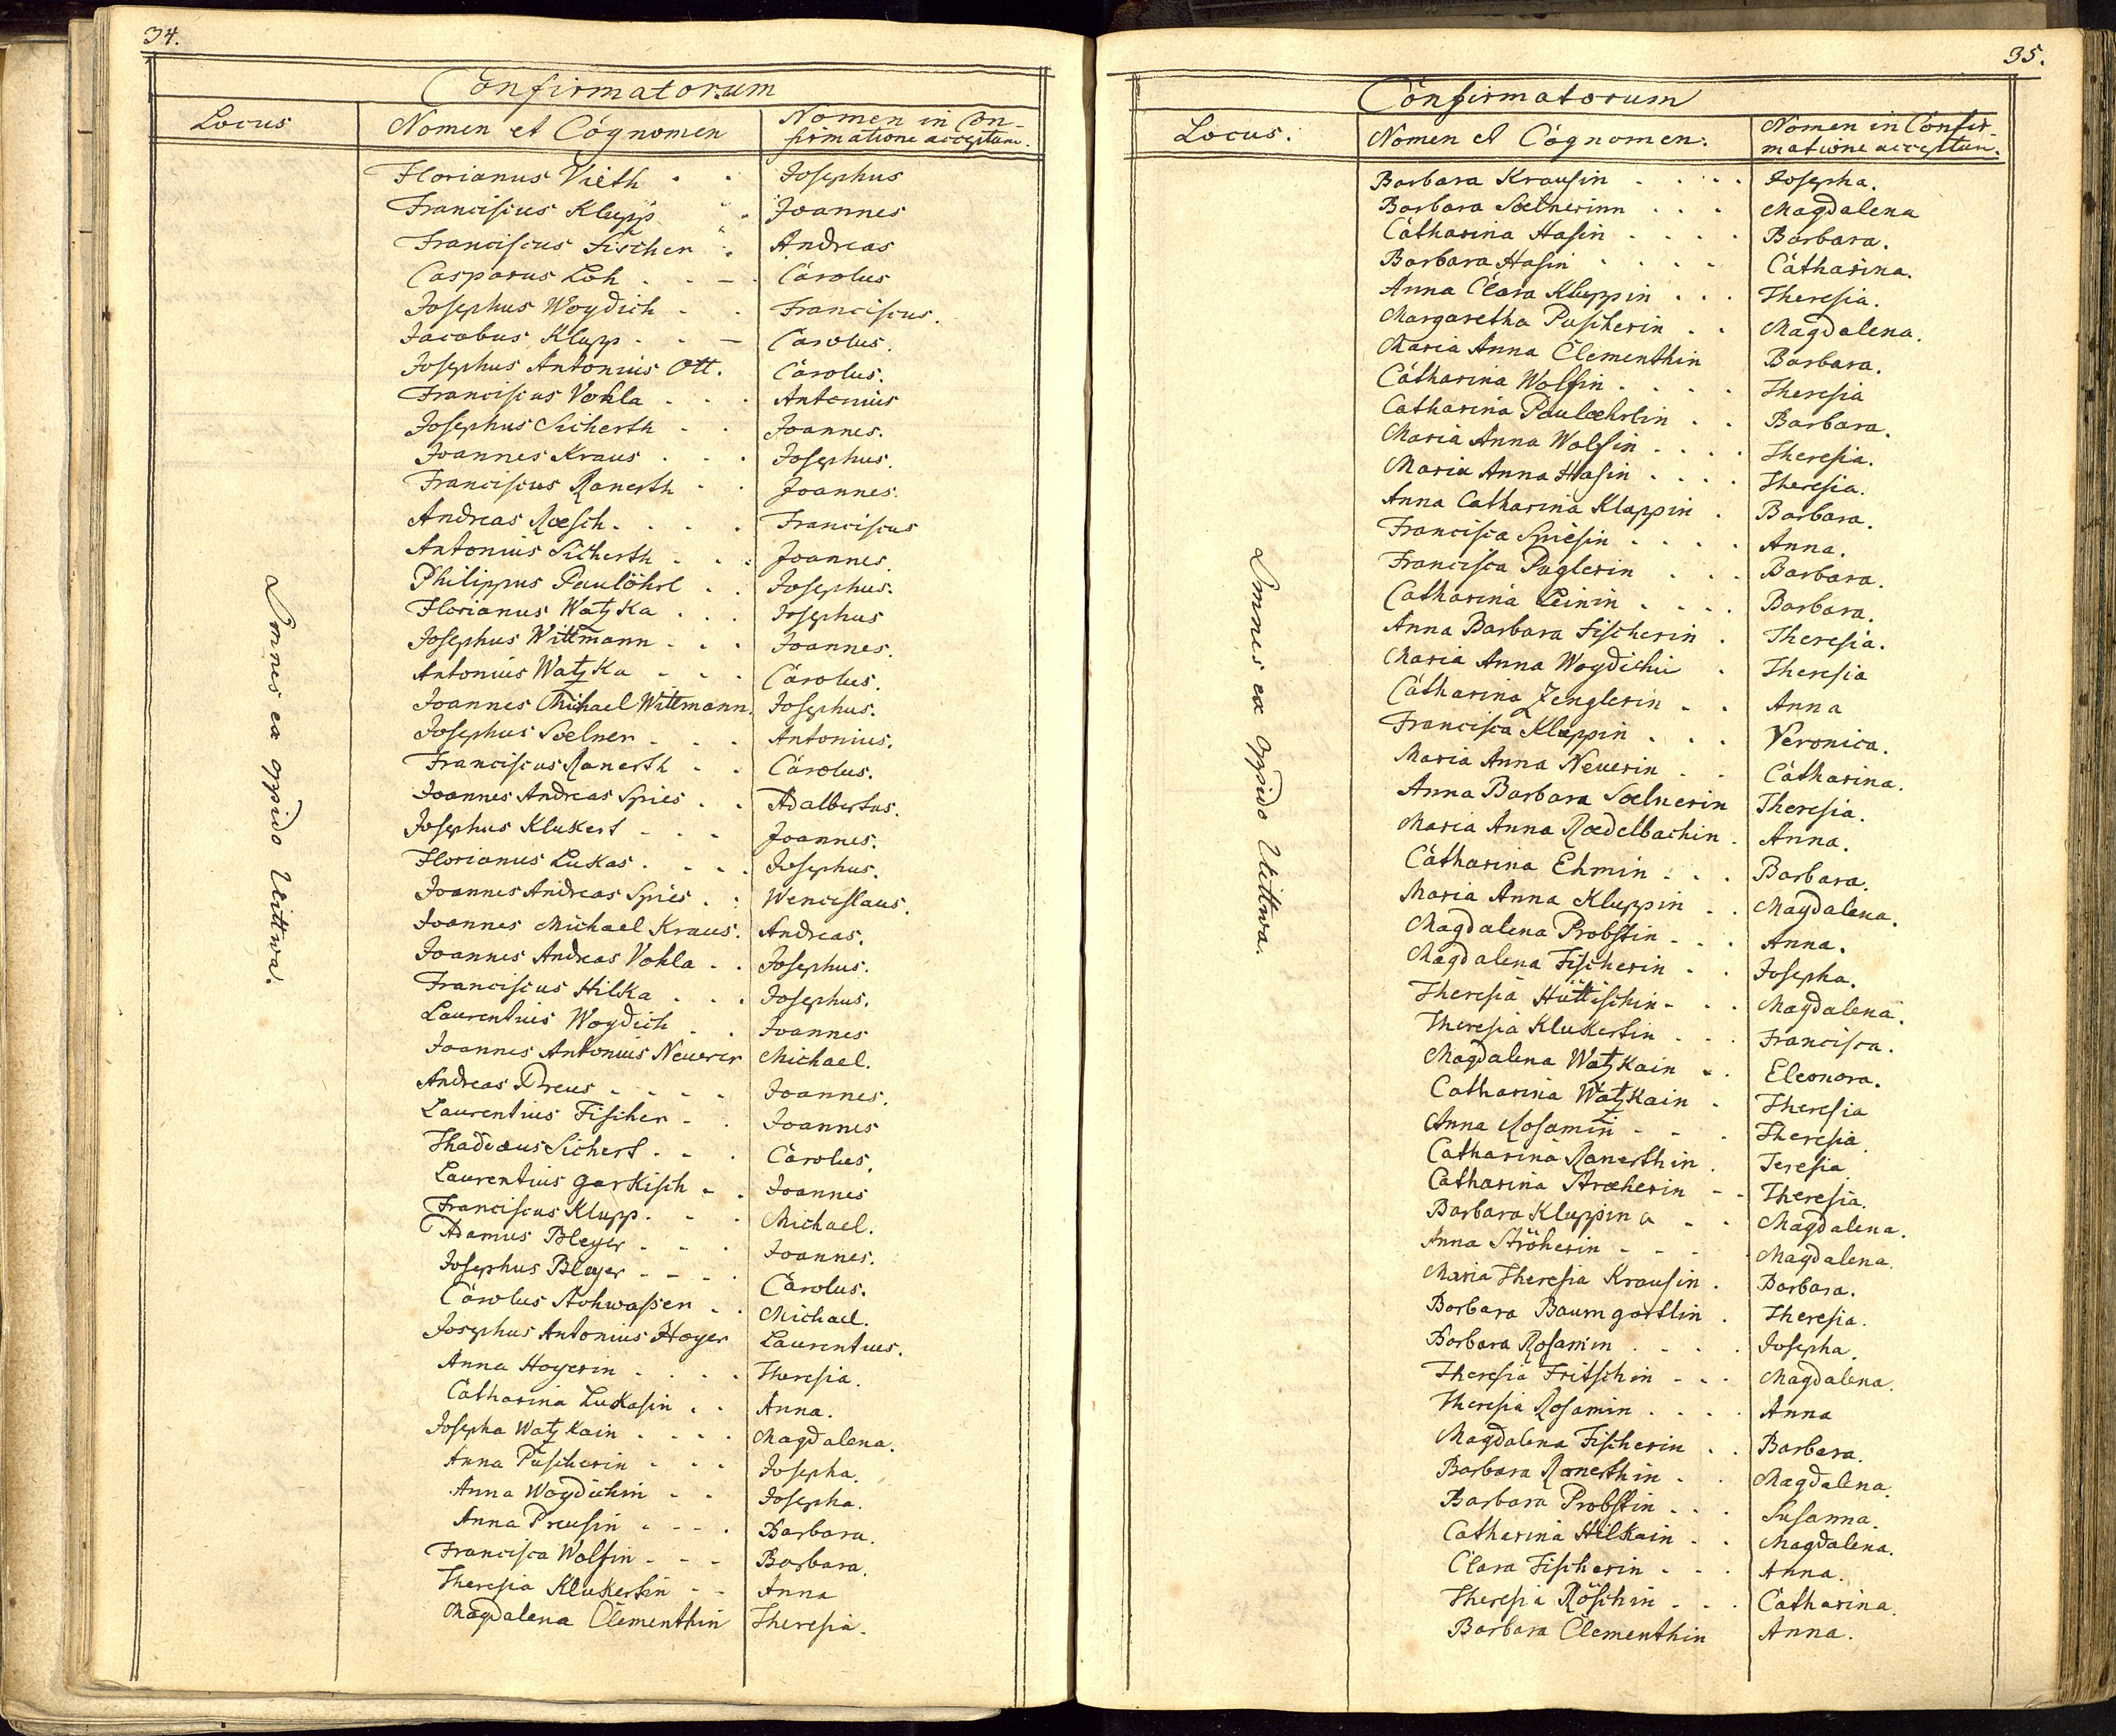 34.
Confirmatorum
Locus
Nomen et Cognomen
Nomen in Con-
firmatione acceptum.
Omnes ex oppido Uittwa.
Florianus Vieth . . Josephus
Franciscus Klupp . Joannes
Franciscus Fischer . Andreas
Casparus Loh . . - Carolus
Josephus Woydich . . Franciscus.
Jacobus Klupp . . - Carolus.
Josephus Antonius Ott. Carolus.
Franciscus Vohla . . . Antonius
Josephus Sicherth . . Joannes.
Joannes Kraus . . . Josephus.
Franciscus Ranerth . . Joannes.
Andreas Roesch . . . . Franciscus
Antonius Sicherth . . . Joannes.
Philippus Paulöhrl . . Josephus.
Florianus Watzka . . . Josephus
Josephus Wittmann . . . Joannes.
Antonius Watzka . . . Carolus.
Joannes Michael Wittmann. Josephus.
Josephus Soelner . . . Antonius.
Franciscus Ranerth . . Carolus.
Joannes Andreas Spies . . Adalbertus.
Josephus Klukert . . . Joannes.
Florianus Lukas . . . . Josephus.
Joannes Andreas Spies . . Wenceslaus.
Joannes Michael Kraus. Andreas.
Joannes Andreas Vohla . . Josephus.
Franciscus Hilka . . . Josephus.
Laurentius Woydich . . Joannes
Joannes Antonius Neuerer Michael.
Andreas Preus . . . . Joannes.
Laurentius Fischer . . Joannes
Thaddaeus Sichert . . . Carolus.
Laurentius Garkisch . . Joannes
Franciscus Klupp . . . Michael.
Adamus Bleyer . . . Joannes.
Josephus Bleyer . . . . Carolus.
Carolus Rohwassen . . Michael.
Josephus Antonius Hoyer Laurentius.
Anna Hoyerin . . . . Theresia.
Catharina Lukasin . . Anna.
Josepha Watzkain . . . . Magdalena.
Anna Puscherin . . . Josepha.
Anna Woydichin . . Josepha.
Anna Preusin . . . . Barbara.
Francisca Wolfin . . . Barbara.
Theresia Klukertin . . Anna
Magdalena Clementhin Theresia.
35.
Confirmatorum
Locus.
Nomen et Cognomen.
Nomen in Confir-
matione acceptum.
Omnes ex oppido Uittwa.
Barbara Krausin . . . . Josepha.
Barbara Soelnerinn . . . Magdalena
Catharina Hasin . . . . Barbara.
Barbara Hasin . . . . Catharina.
Anna Clara Kluppin . . . Theresia.
Margaretha Puscherin . . Magdalena.
Maria Anna Clementhin Barbara.
Catharina Wolfin . . . . Theresia
Catharina Pauloehrlin . . Barbara.
Maria Anna Wolfin . . . . Theresia.
Maria Anna Hasin . . . . Theresia.
Anna Catharina Kluppin . Barbara.
Francisca Spiesin . . . . Anna.
Francisca Paglerin . . . Barbara.
Catharina Leinin . . . . Barbara.
Anna Barbara Fischerin . Theresia.
Maria Anna Woydichin . Theresia
Catharina Zenglerin . . Anna
Francisca Kluppin . . . Veronica.
Maria Anna Neuerin . . Catharina.
Anna Barbara Soelnerin Theresia.
Maria Anna Roedelbachin . Anna.
Catharina Ehmin . . . Barbara.
Maria Anna Kluppin . . Magdalena.
Magdalena Probstin . . . Anna.
Magdalena Fischerin . . Josepha.
Theresia Hüttischin . . . Magdalena.
Theresia Klukertin . . . Francisca.
Magdalena Watzkain . . Eleonora.
Catharina Watzkain . Theresia
Anna Rosamin . . . Theresia.
Catharina Ranerthin . Teresia
Catharina Stroeherin . . Theresia.
Barbara Kluppin . . Magdalena.
Anna Ströherin . . . . Magdalena.
Maria Theresia Krausin . Barbara.
Barbara Baumgartlin . Theresia.
Barbara Rosamin . . . . Josepha.
Theresia Fritschin . . . Magdalena.
Theresia Rosamin . . . . Anna
Magdalena Fischerin . . Barbara.
Barbara Ranerthin . . Magdalena.
Barbara Probstin . . . Susanna.
Catharina Hilkain . . Magdalena.
Clara Fischerin . . . Anna.
Theresia Röschin . . . Catharina.
Barbara Clementhin Anna.